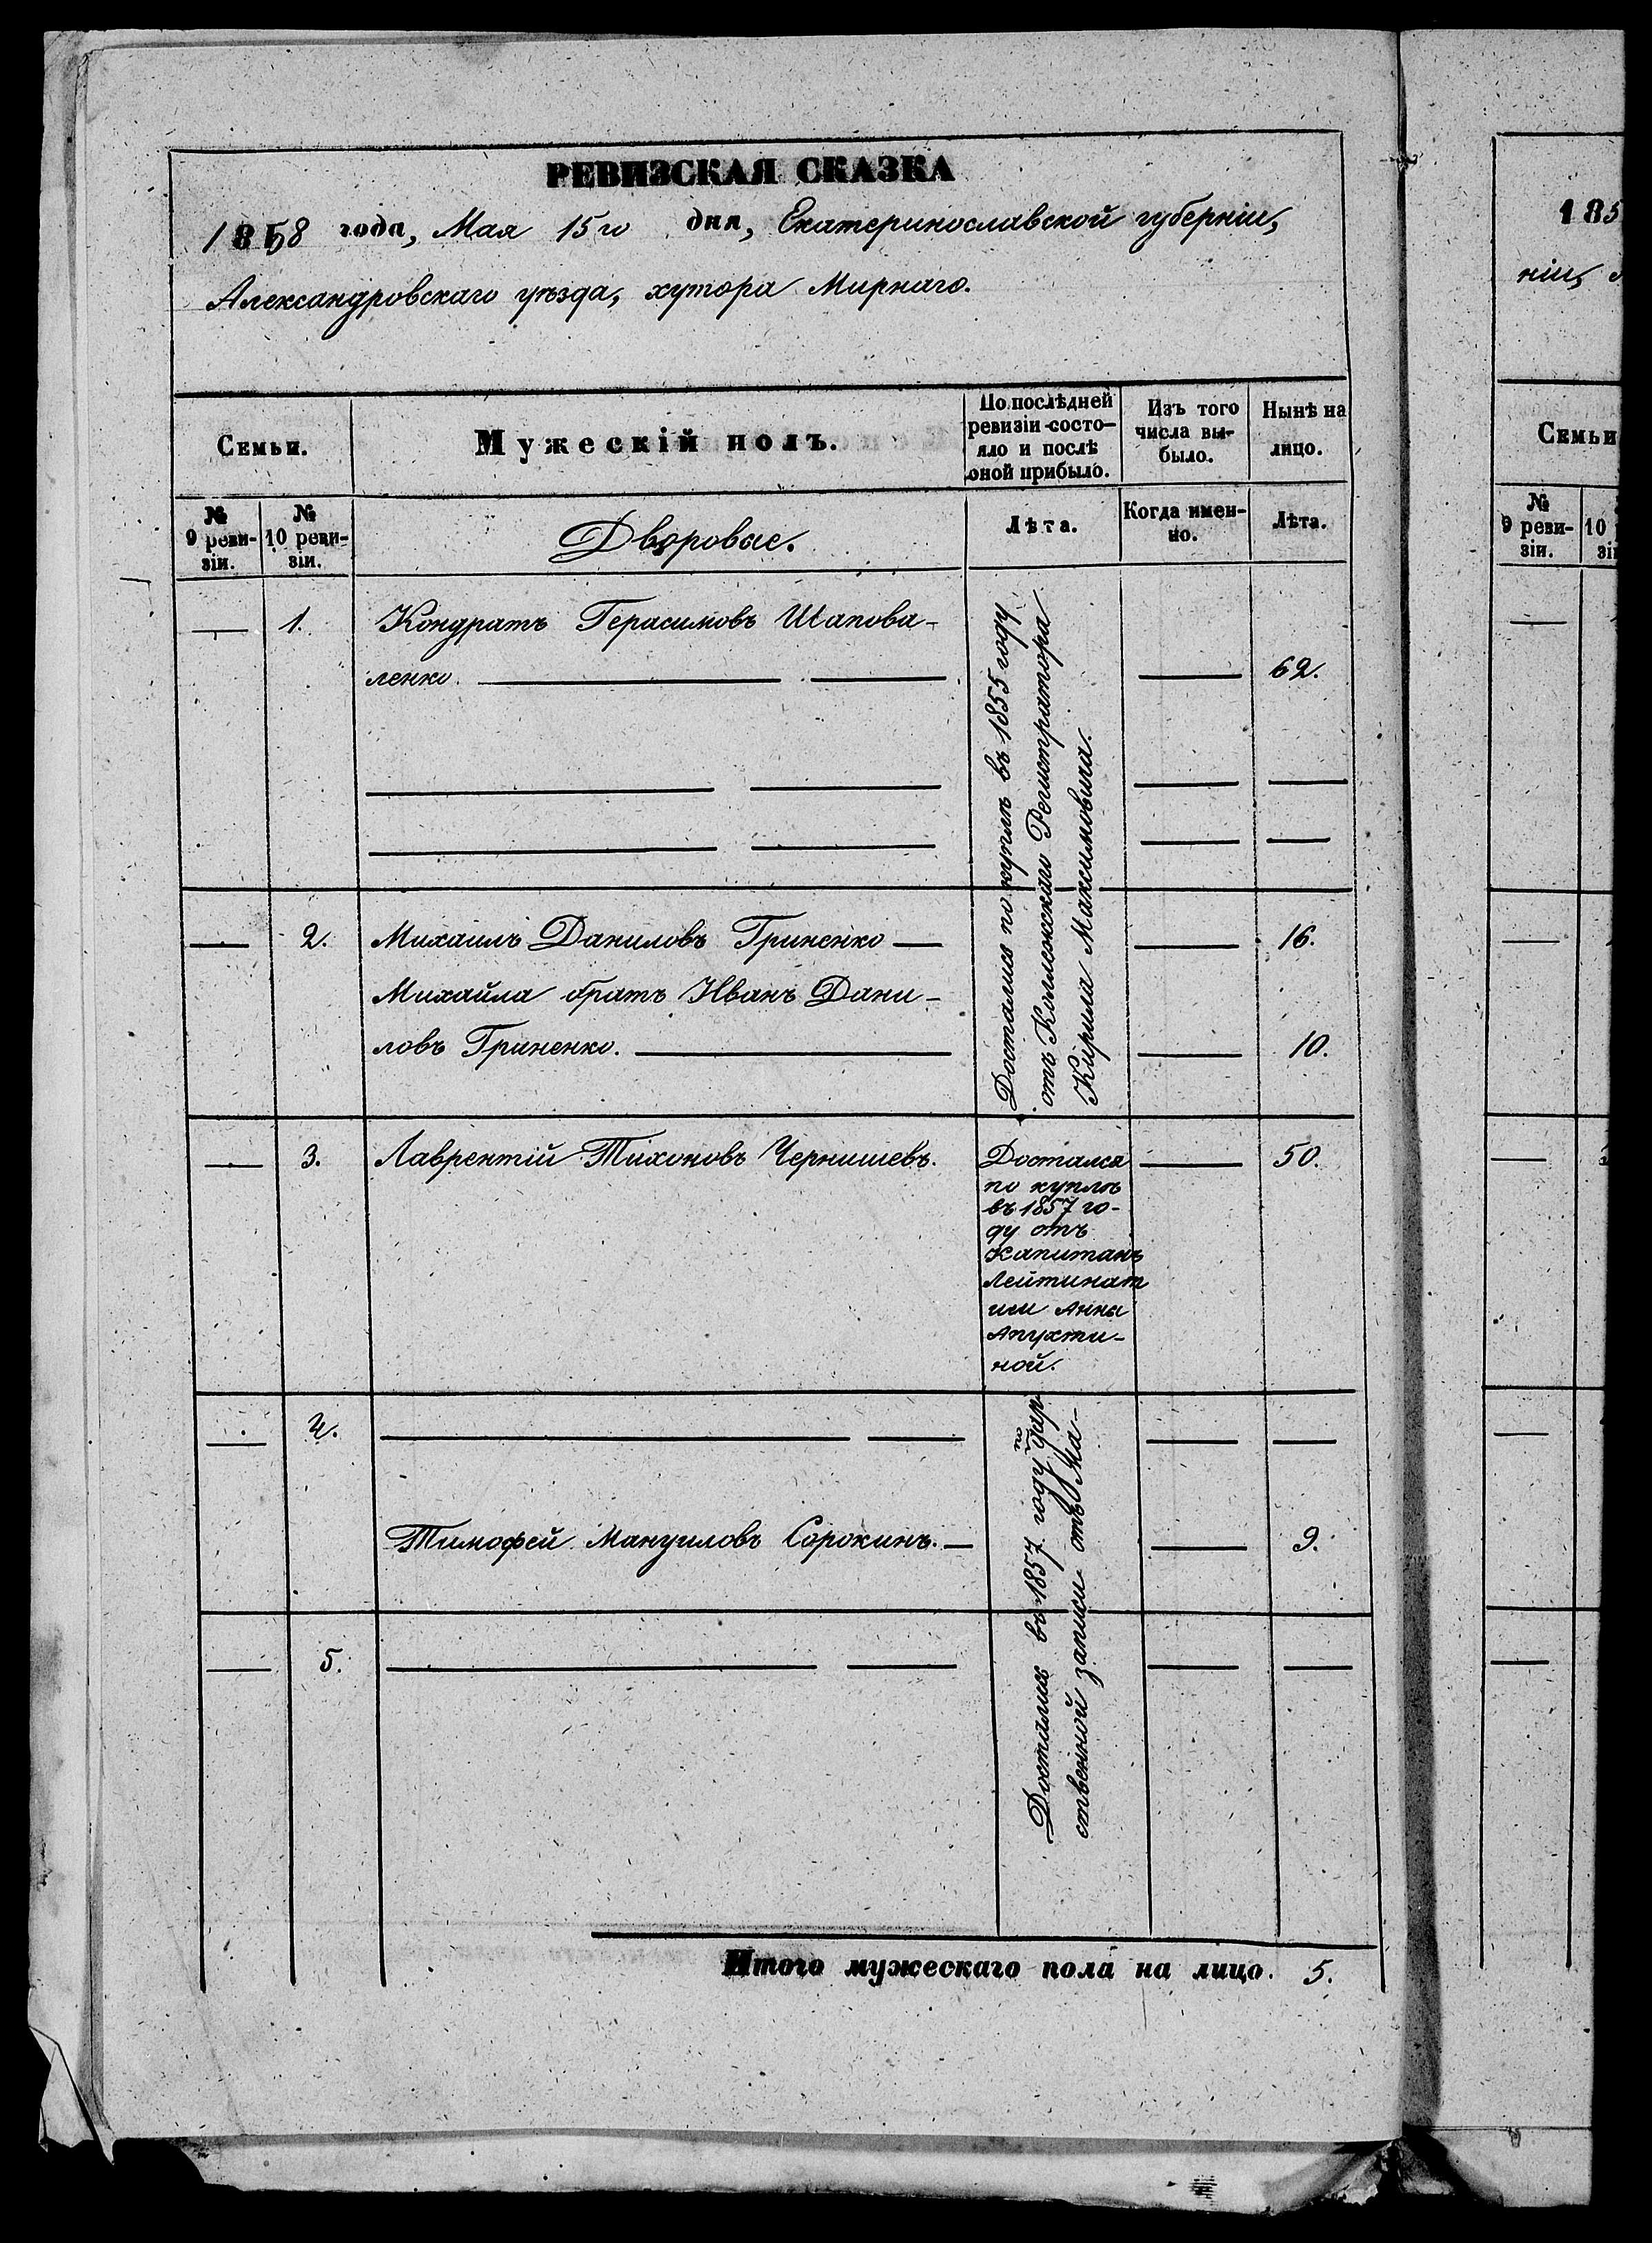 РЕВИЗСКАЯ СКАЗКА
1858 года, Мая 15го дня, Екатеринославской губерніи,
Александровскаго уѣзда, хутора Мирнаго.
Семьи.
Мужескій полъ.
По послѣдней
ревизіи состо-
яло и послѣ
оной прибыло.
Изъ того
числа вы-
было.
Нынѣ на
лицо.
№
9 реви-
зіи.
№
10 реви-
зіи.
Дворовые.
Лѣта.
Когда имен-
но.
Лѣта.
1. Кондратъ Герасимовъ Шапова-
ленко. 62.
Достались по куплѣ въ 1855 году
отъ Коллежскаго Регистратора
Кирила Максимовича.
2. Михаилъ Даниловъ Гриненко 16.
Михайла братъ Иванъ Дани-
ловъ Гриненко. 10.
3. Лаврентій Тихоновъ Чернишевъ. 50.
Достался
по куплѣ
въ 1857 го-
ду отъ
Капитанъ
Лейтинат
ши Анны
Апухти-
ной.
4.
Тимофей Мануиловъ Сорокинъ. 9.
Достались въ 1857 году по дар
ственной записи отъ Ма-
5.
Итого мужескаго пола на лицо. 5.
185
ніи,
Семьи
№
9 реви-
зіи.
10
зі